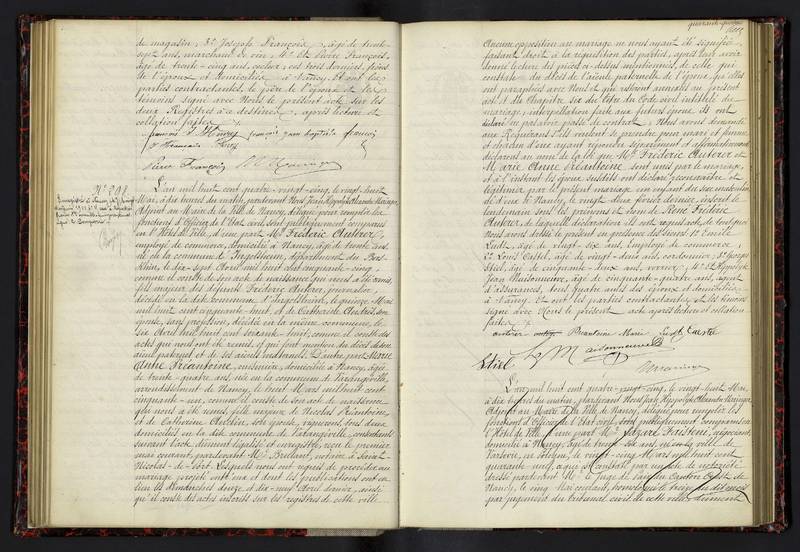 de magasin, 3° Joseph François, âgé de trente
sept ans, marchand de vin, 4° et Pierre François,
âgé de trente-cinq ans, ces trois derniers, frères
de l'époux et domiciliés à Nancy. Et ont les
parties contractantes, le père de l'époux et les
témoins signé avec Nous le présent acte sur les
deux Registres à ce destinés, après lecture et
collation faites.
françois
Pierre François
N° 298.
L'an mil huit cent quatre-vingt-cinq, le vingt-huit
Mai, à dix heures du matin, pardevant Nous Jean Hippolyte Alexandre Maringer,
Adjoint au Maire de la Ville de Nancy, délégué pour remplir les
fonctions d'Officier de l'Etat civil, sont publiquement comparus
en l'Hôtel de Ville, d'une part Mr Frédéric Auterer
employé de commerce, domicilié à Nancy, âgé de trente ans,
né en la commune de Ingolsheim, département du Bas-
Rhin, le dix-sept Avril mil huit cent cinquante-cinq,
comme il conste de son acte de naissance qui nous a été remis,
fils majeur des défunts Frédéric Auterer, journalier,
décédé en la dite commune d'Ingolsheim, le quinze Mars
mil huit cent cinquante-huit, et de Catherine
épouse, sans profession, décédée en la même commune, le
mil huit cent soixante-huit, comme il conste des
actes qui nous ont été remis, et qui font mention du décès de ses
aïeul paternel et de ses aïeuls maternels. D'autre part Marie
Anne Briantoine, cuisinière, domiciliée à Nancy, âgée
de trente-quatre ans, née en la commune de Varangéville,
arrondissement de Nancy, le trois Mars mil huit cent
cinquante-un, comme il conste de son acte de naissance
qui nous a été remis, fille majeure de Nicolas Briantoine,
et de Catherine, son épouse, vignerons, tous deux
domiciliés en la dite commune de Varangéville, consentants
suivant l'acte dûment légalisé et enregistré, reçu le premier
mai courant, pardevant Me Brullant, notaire à Saint-
Nicolas-de-Port. Lesquels nous ont requis de procéder au
mariage projeté entre eux et dont les publications ont eu
lieu les dimanches douze et dix-neuf Avril dernier, ainsi
qu'il conste des actes inscrits sur les registres de cette ville.
Aucune opposition au mariage ne nous ayant été signifiée,
faisant droit à la réquisition des parties, après leur avoir
donné lecture des pièces ci-dessus mentionnées, de celle qui
constate du décès de l'aïeule paternelle de l'époux, qu'elles
ont paraphées avec Nous et qui resteront annexées au présent
acte, et du Chapitre six du titre du Code civil intitulé du
mariage, interpellation faite aux futurs époux ils ont
déclaré ne pas avoir passé de contrat. Nous avons demandé
aux Requérants s'ils veulent se prendre pour mari et femme
et chacun d'eux ayant répondu séparément et affirmativement
déclarons au nom de la loi que Mr Frédéric Auterer et
Marie Anne Briantoine sont unis par le mariage,
et à l'instant les époux susdits ont déclaré reconnaître et
légitimer par le présent mariage un enfant du sexe masculin
né d'eux à Nancy, le vingt-deux février dernier, inscrit le
lendemain sous les prénoms et nom de René Frédéric
Auterer, de laquelle déclaration ils ont requis acte, de tout quoi
Nous avons dressé le présent en présence des sieurs 1° Emile
âgé de vingt-six ans, employé de commerce,
2° Louis Castel, âgé de vingt-deux ans, cordonnier, 3° Georges
Stiel, âgé de cinquante-deux ans, verrier, 4° et Hippolyte
Jean Maisonneuve, âgé de cinquante-quatre ans, agent
d'assurances, tous quatre amis des époux et domiciliés
à Nancy. Et ont les parties contractantes et les témoins
signé avec Nous le présent acte après lecture et collation
faites.
auterer Briantoine Marie Castel
Stiel Maisonneuve
Maringer
L'an mil huit cent quatre-vingt-cinq, le vingt-huit Mai,
à dix heures du matin, pardevant Nous Jean Hippolyte Alexandre Maringer,
Adjoint au Maire de la Ville de Nancy, délégué pour remplir les
fonctions d'Officier de l'Etat civil, sont publiquement comparus en
l'Hôtel de Ville, d'une part Mr Lazare
domicilié à Nancy, âgé de ans, né en la ville de
Varsovie, en Pologne, le vingt-cinq Mars mil huit cent
quarante-neuf, ainsi qu'il conste par un acte de notoriété
dressé pardevant Mr le Juge de Paix du Canton de
Nancy, le cinq Mai courant, homologué le
par jugement du tribunal civil de cette ville, dûment